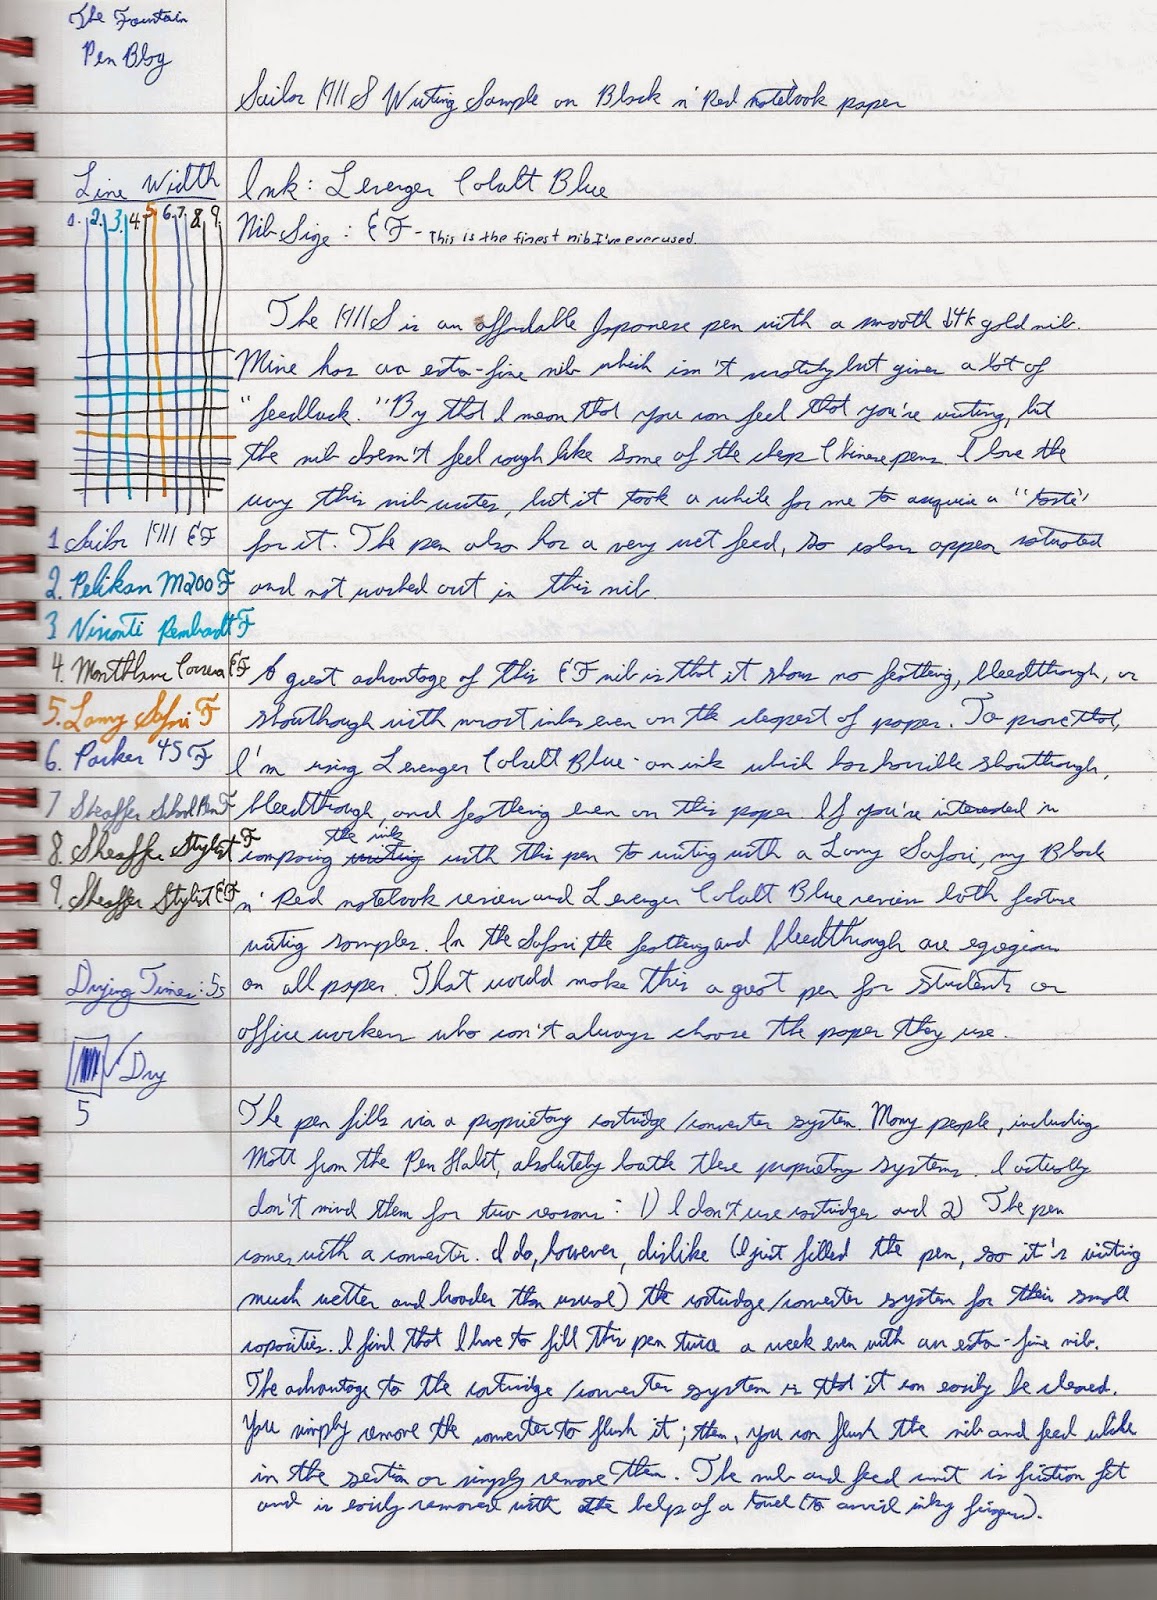 The Fountain
Pen Blog
Sailor 1911 S Writing Sample on Black n' Red notebook paper
Line Width
1. 2. 3. 4. 5. 6. 7. 8. 9.
1 Sailor 1911 EF
2. Pelikan M200 F
3 Visconti Rembrandt F
4. Montblanc Carrera EF
5. Lamy Safari F
6. Parker 45 F
7 Sheaffer School Pen F
8. Sheaffer Stylist F
9. Sheaffer Stylist EF
Drying Times: 5s
✓ Dry
5
Ink: Levenger Cobalt Blue
Nib Size: EF - This is the finest nib I've ever used.
The 1911S is an affordable Japanese pen with a smooth 14k gold nib.
Mine has an extra-fine nib which isn't scratchy but gives a lot of
"feedback." By that I mean that you can feel that you're writing, but
the nib doesn't feel rough like some of the cheap Chinese pens. I love the
way this nib writes, but it took a while for me to acquire a "taste"
for it. The pen also has a very wet feed, so colors appear saturated
and not washed out in this nib.
A great advantage of this EF nib is that it shows no feathering, bleedthrough, or
showthough with most inks even on the cheapest of paper. To prove that,
I'm using Levenger Cobalt Blue - an ink which has horrible showthough,
bleedthrough, and feathering even on this paper. If you're interested in
comparing the ink with this pen to writing with a Lamy Safari, my Black
n' Red notebook review and Levenger Cobalt Blue review both feature
writing samples. In the Safari the feathering and bleedthrough are egregious
on all paper. That would make this a great pen for students or
office workers who can't always choose the paper they use.
The pen fills via a proprietary cartridge/converter system. Many people, including
Matt from the Pen Habit, absolutely loathe these proprietary systems. I actually
don't mind them for two reasons: 1) I don't use cartridges and 2) The pen
comes with a converter. I do, however, dislike (I just filled the pen, so it's writing
much wetter and broader than usual) the cartridge/converter system for their small
capacities. I find that I have to fill this pen twice a week even with an extra-fine nib.
The advantage to the cartridge/converter system is that it can easily be cleaned.
You simply remove the converter to flush it; then, you can flush the nib and feed while
in the section or simply remove them. The nib and feed unit is friction fit
and is easily removed with the help of a towel (to avoid inky fingers).